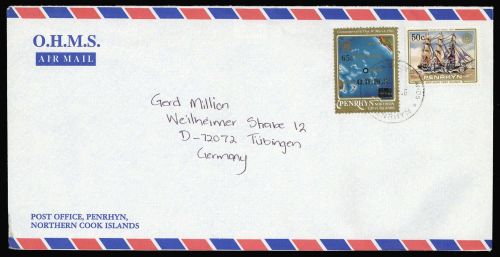 O.H.M.S.
AIR MAIL
65c
PENRHYN
NORTHERN
COOK ISLANDS
50c
PENRHYN
Gerd Million
Weilheimer Straße 12
D-72072 Tübingen
Germany
POST OFFICE, PENRHYN,
NORTHERN COOK ISLANDS